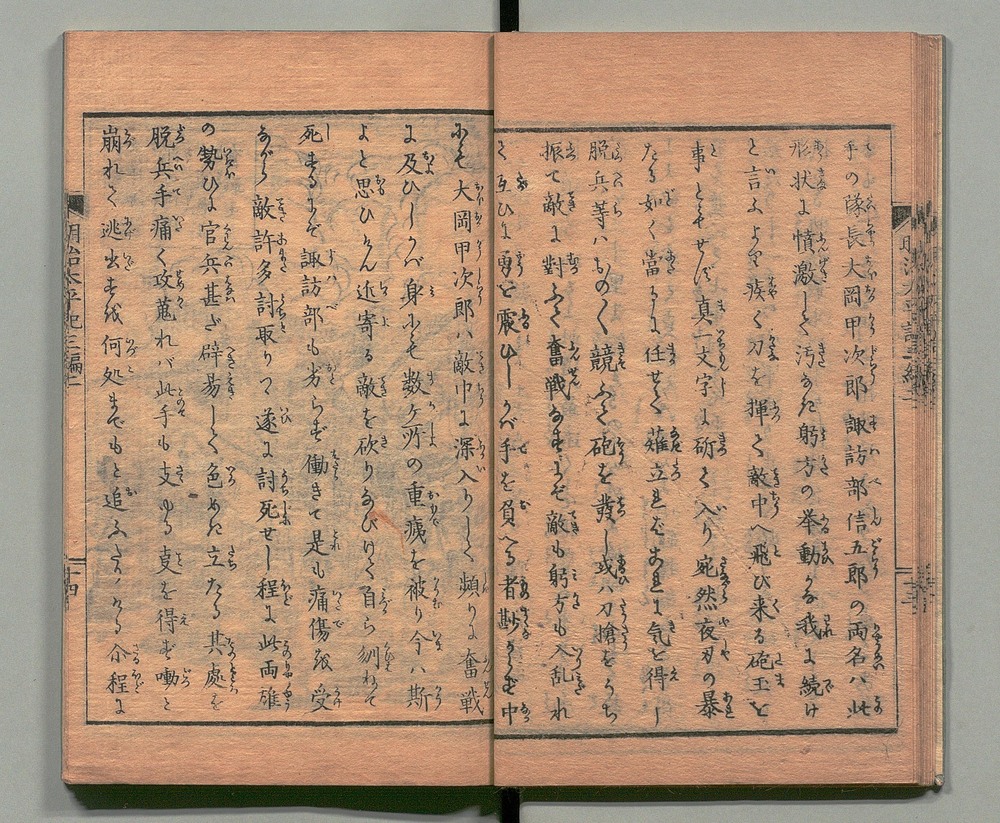 手の隊長大岡甲次郎諏訪部信五郎の両名ハ此
形状に憤激して汚なき躬方の挙動かな我に続け
と言ふより疾く刀を揮て敵中へ飛び来る砲玉を
事ともせず真一文字に斫て入り宛然夜刃の暴
たる如く當るに任せて薙立れバこれに気を得し
脱兵等ハものゝ競ふて砲を發し或ハ刀搶をうち
振て敵に對ふて奮戦なすにぞ敵も躬方も入乱れ
て互ひに勇を震ひしかバ手を負へる者尠からず中
にも大岡甲次郎ハ敵中に深入りして頻りに奮戦
に及びしかバ身にも数ヶ所の重痍を被り今ハ斯
よと思ひけん近寄る敵を砍りなびけて自ら刎ねて
死するにぞ諏訪部も劣らず働きて是も痛傷を受
ながら敵許多討取りつ遂に討死せし程に此両雄
の勢ひに官兵甚だ辟易して色めき立たる其處を
脱兵手痛く攻蒐れバ此手も支ゆる支を得ず嘞と
崩れて逃出すを何処までもと追ふたりける尒程に
明治太平記三編二
十四